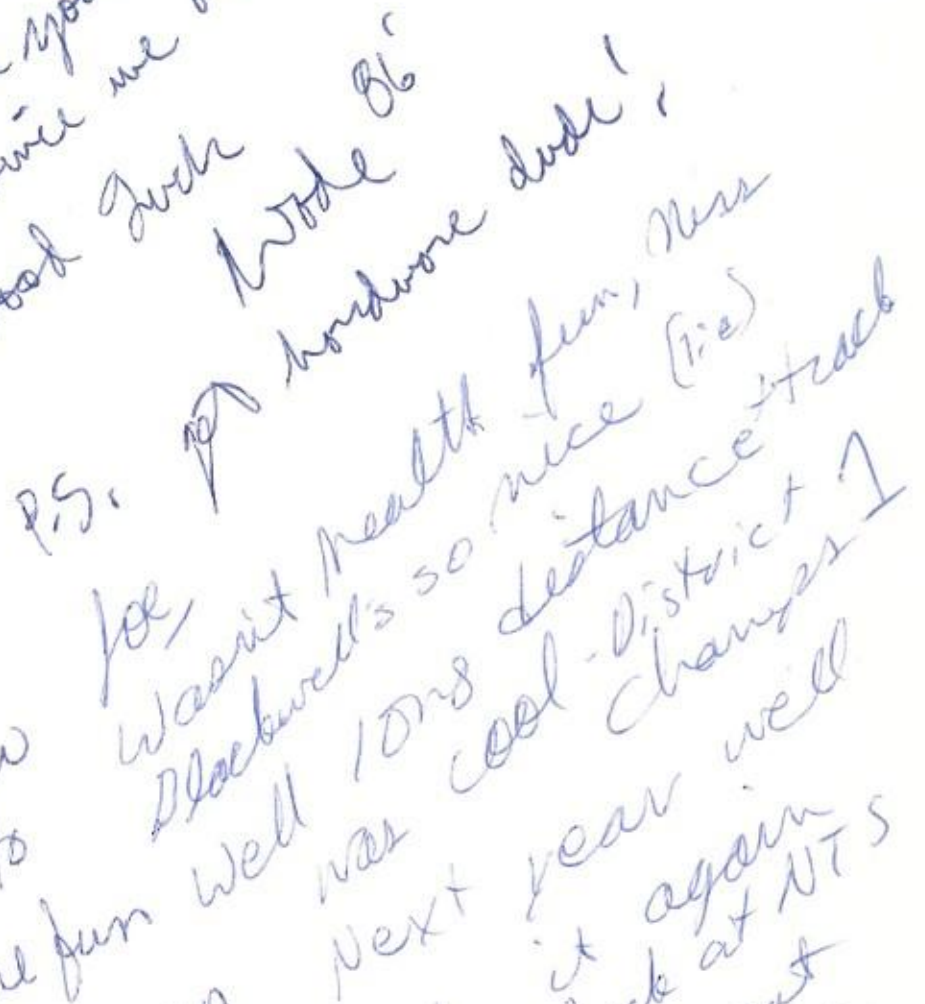 you
we
Good Luck
Wade 86'
P.S. hardware dude!
Joe,
Wasn't health fun, Miss
Blackwell's so nice (lie)
Well long distance track
was cool - District 1
Champs
fun
Next year well
it again
at NTS